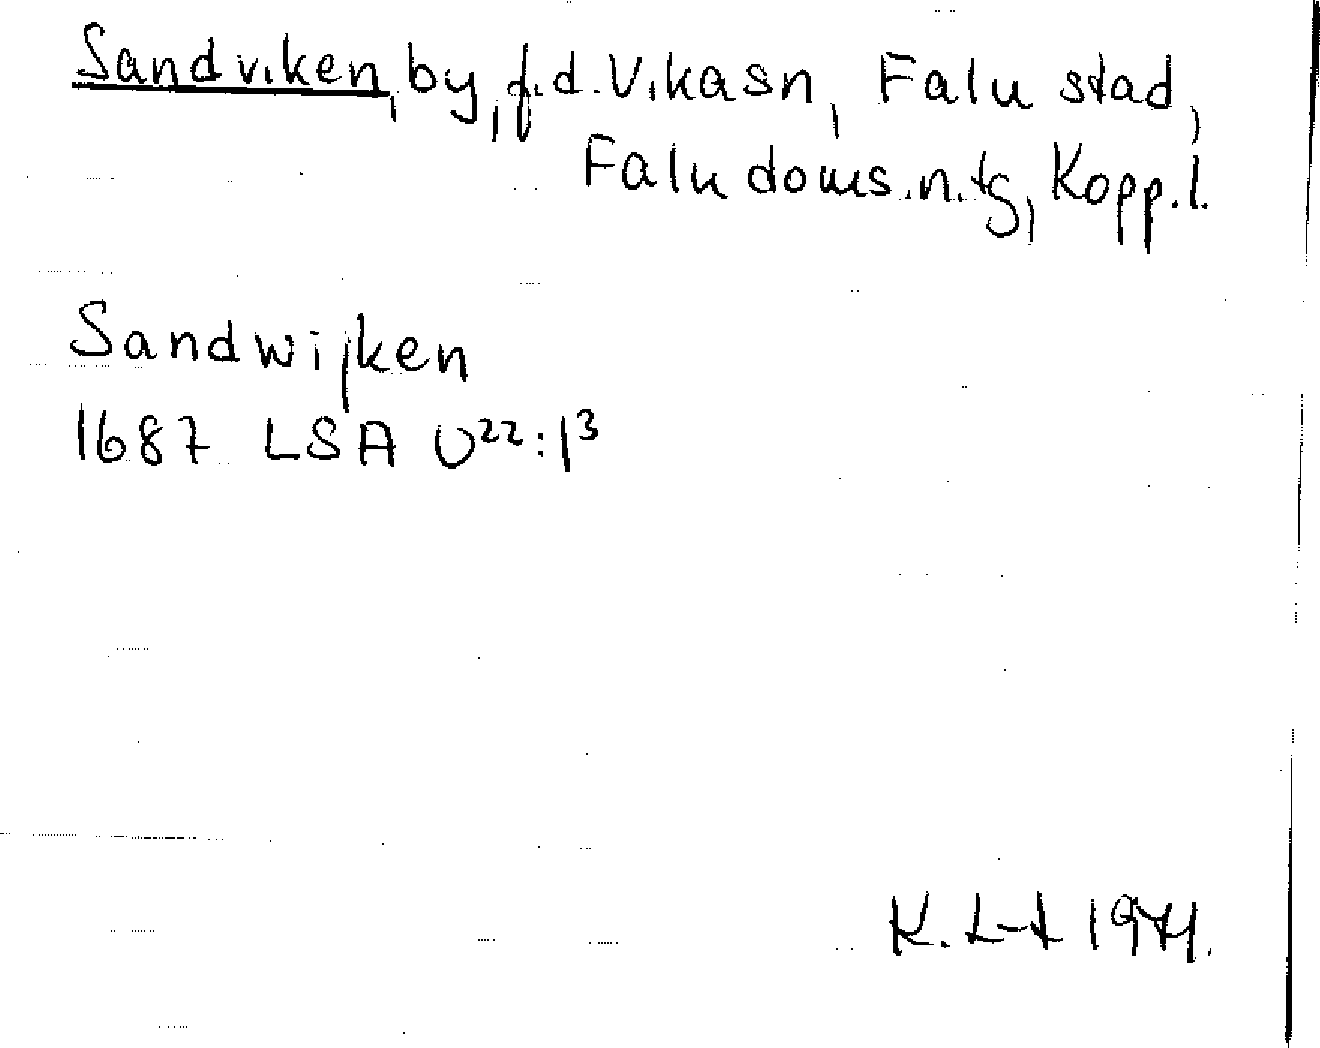 Sandviken, by, f.d. Vika sn, Falu stad,
Falu doms.n.tg, Kopp.l.
Sandwijken
1687 LSA U22:13
K. L-t 1971.